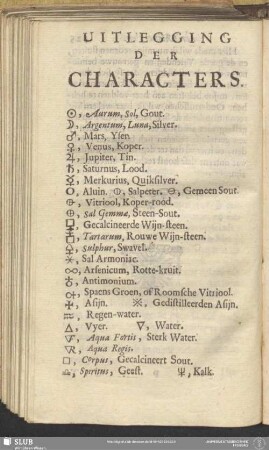 UITLEGGING
DER
CHARACTERS.
☉, Aurum, Sol, Gout.
☽, Argentum, Luna, Silver.
♂, Mars, Ysen.
♀, Venus, Koper.
♃, Jupiter, Tin.
♄, Saturnus, Lood.
☿, Merkurius, Quiksilver.
O, Aluin. ⦶, Salpeter. ⊖, Gemeen Sout.
Vitriool, Koper-rood.
⊕, Sal Gemmæ, Steen-Sout.
Gecalcineerde Wijn-steen.
Tartarum, Rouwe Wijn-steen.
🜍, Sulphur, Swavel.
✳, Sal Armoniac.
Arsenicum, Rotte-kruit.
♁, Antimonium.
Spaens Groen, of Roomsche Vitriool.
Asijn. Gedistilleerden Asijn.
Regen-water.
△, Vyer. ▽, Water.
Aqua Fortis, Sterk Water.
Aqua Regis.
□, Corpus, Gecalcineert Sout.
Spiritus, Geest. Ψ, Kalk.
SLUB